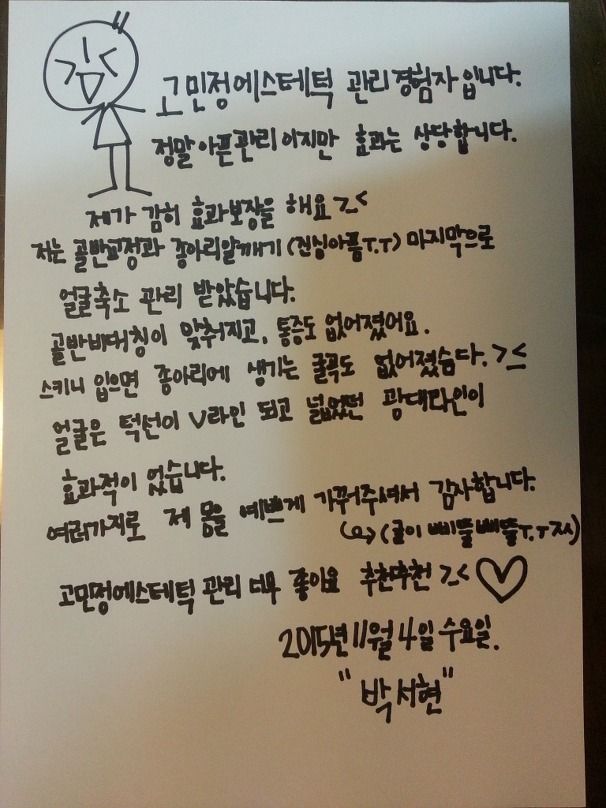 고민정에스테틱 관리경험자입니다.
정말아픈관리이지만 효과는 상당합니다.
제가 감히 효과보장을 해요 >_<
저는 골반교정과 종아리알깨기(진심아픔T.T) 마지막으로
얼굴축소 관리 받았습니다.
골반비대칭이 맞춰지고, 통증도 없어졌어요.
스키니 입으면 종아리에 생기는 굴곡도 없어졌슴다. >_<
얼굴은 턱선이 V라인 되고 넓었던 광대라인이
효과적이 었습니다.
여러가지로 제 몸을 예쁘게 가꿔주셔서 감사합니다.
(글이 삐뚤빼뚤T.T ㅈㅅ)
고민정에스테틱 관리 너무 좋아요 추천추천 >_< ♡
2015년 11월 4일 수요일.
"박서현"